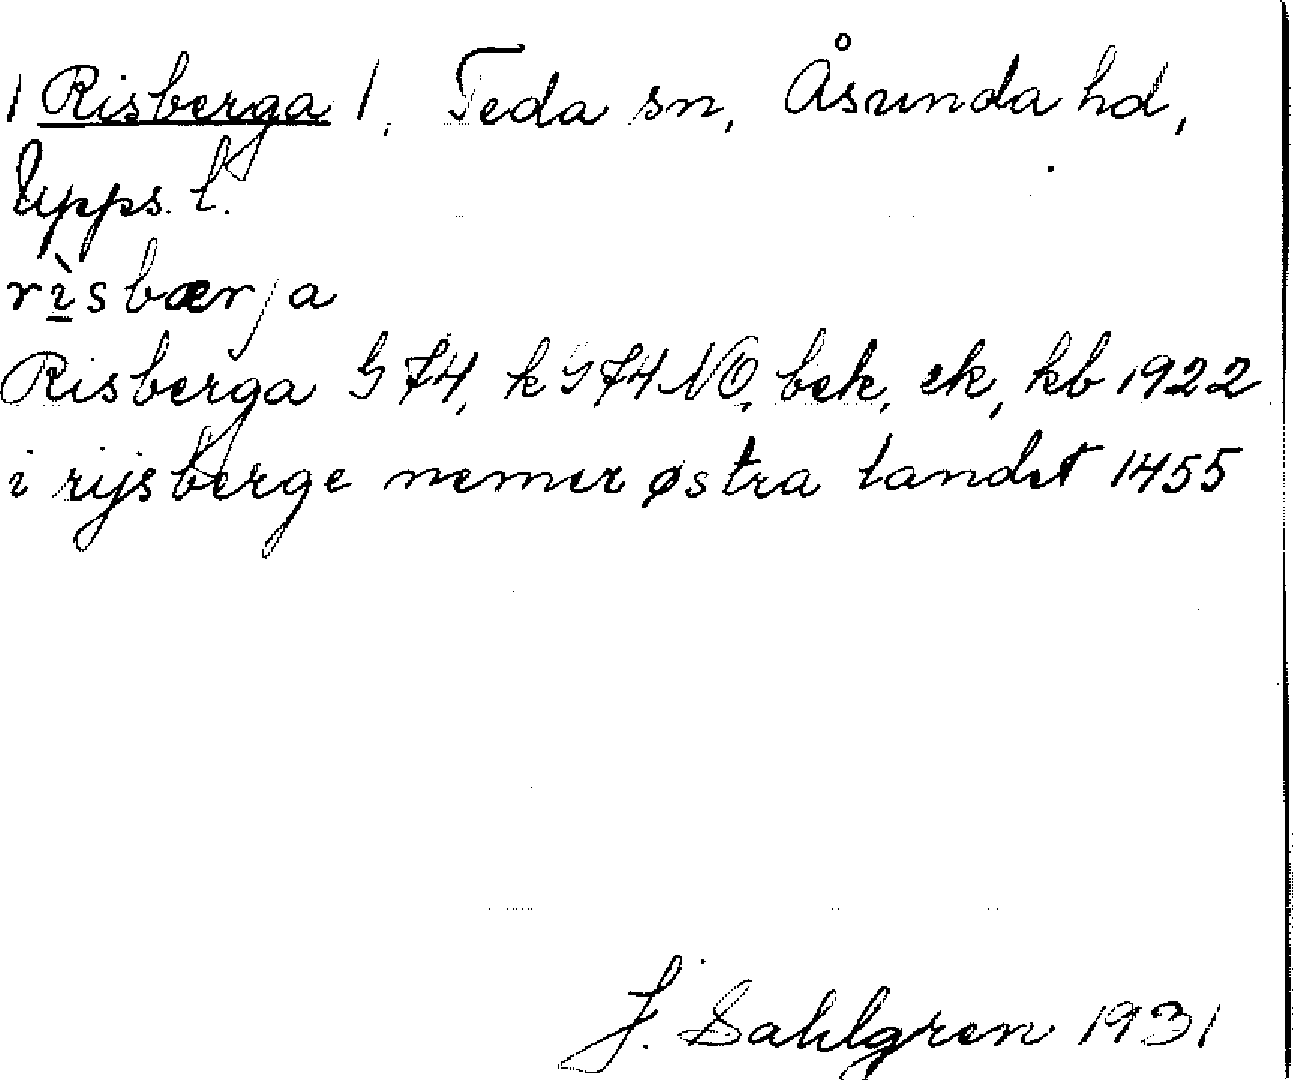 / Risberga /, Teda sn, Åsunda hd,
Upps. l.
rìsbærja
Risberga G 74, k G 74 NO, bek, ek, kb 1922
i rijsberge nemer østra landet 1455
J. Sahlgren 1931